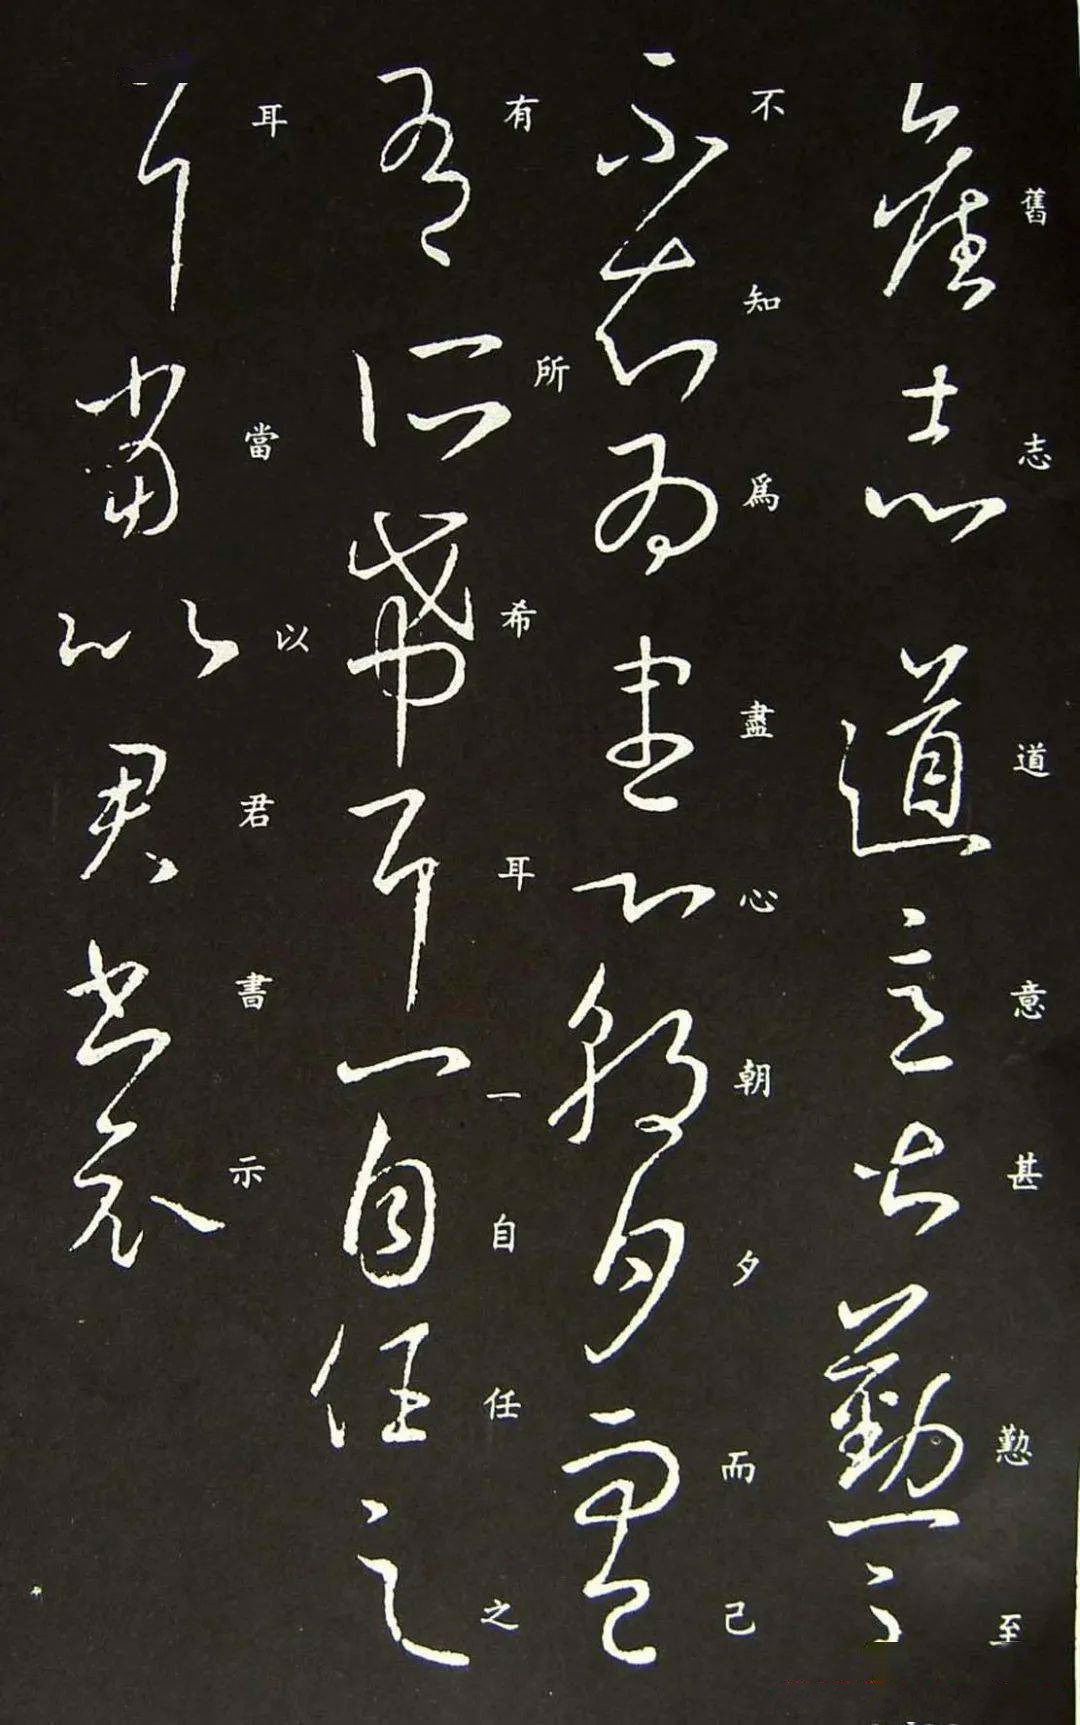 舊志道意甚懃至
不知為盡心朝夕而己
有所希耳一自任之
耳當以君書示